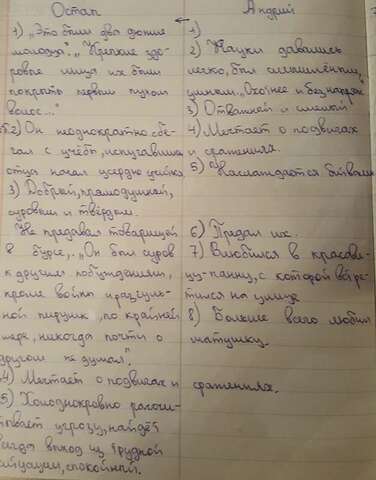 Остап
1) „Это были два дюжие
молодца". „Крепкие здо-
ровые лица их были
покрыты первым пухом
волос..."
2) Он неоднократно сбе-
гал с учёбы, испугавшись
отца начал усердно
3) Добрый, прямодушный,
суровым и твёрдым.
Не предавал товарищей
в бурсе, „Он был суров
к другим побуждениям,
кроме войны и разгуль-
ной пирушки, по крайней
мере, никогда почти о
другом не думал".
4) Мечтает о подвигах и сражениях.
5) Хладнокровно рассчи-
тывает угрозу, найдёт
всегда выход из трудной
ситуации, спокойный.
Андрий
1)
2) Науки давались
легко, был смышлённым,
"Охотнее и без напряже
3) Отважный и смелый
4) Мечтает о подвигах
и сражениях.
5) Наслаждается битвой
6) Предал их.
7) Влюбился в красави-
цу-панну, с которой встре-
тился на улице
8) Больше всего любил
матушку.